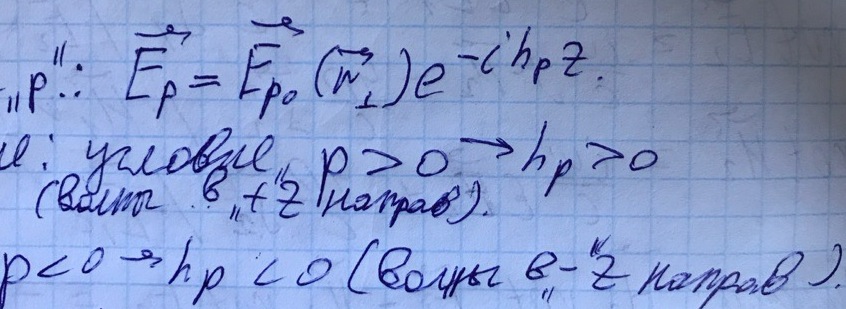 „p“: E⃗p = E⃗p₀ (r⃗⊥) e^-ihpz.
е: условие, p > 0 → hp > 0
(волны в „+Z“ направ).
p < 0 → hp < 0 (волны в „-Z“ направ).